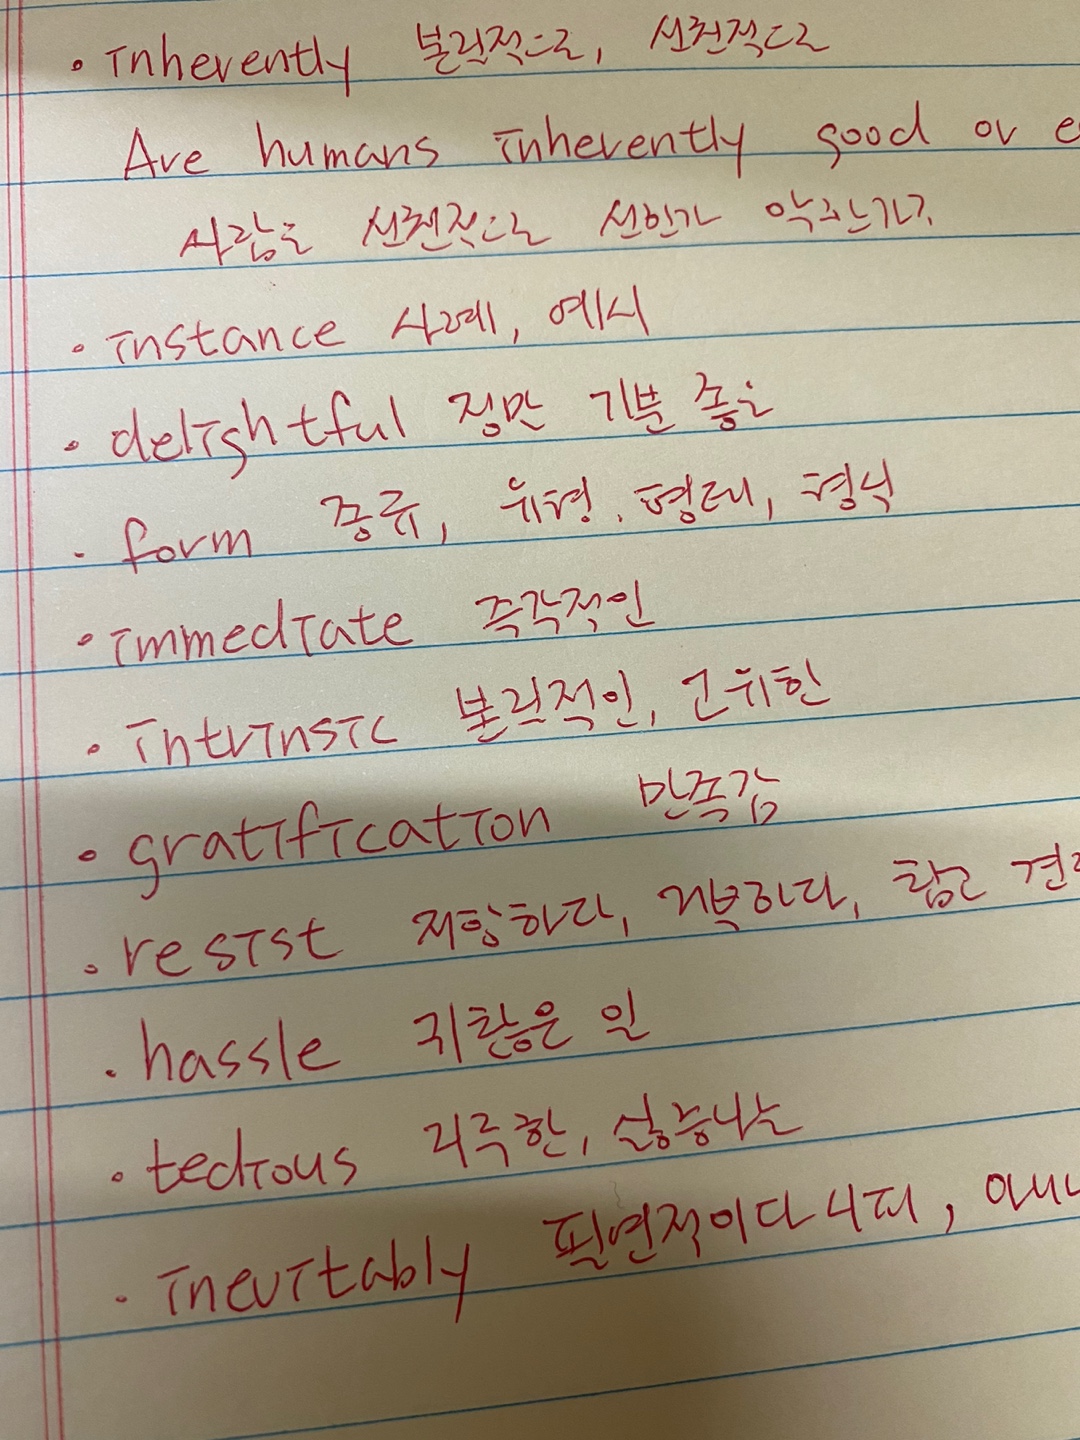 · inherently 본질적으로, 선천적으로
Are humans inherently good or e
사람은 선천적으로 선한가 악한가?
· instance 사례, 예시
· delightful 정말 기분 좋은
· form 종류, 유형, 형태, 형식
· immediate 즉각적인
· intrinsic 본질적인, 고유한
· gratification 만족감
· resist 저항하다, 거부하다, 참고 견
· hassle 귀찮은 일
· tedious 지루한, 싫증나는
· inevitably 필연적이다시피, 아니나